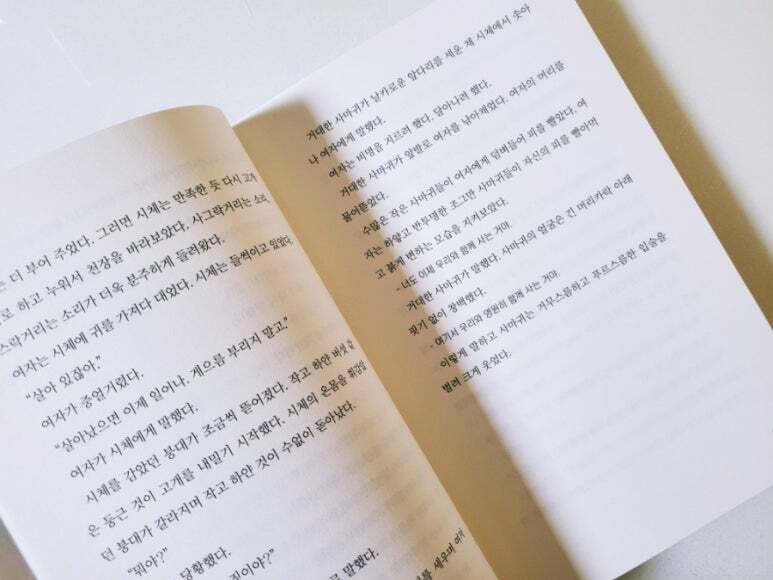 는 더 부어 주었다. 그러면 시체는 만족한 듯 다시 고개
로 하고 누워서 천장을 바라보았다. 사그락거리는 소리,
스락거리는 소리가 더욱 분주하게 들려왔다.
여자는 시체에 귀를 가져다 대었다. 시체는 들썩이고 있었다.
“살아 있잖아.”
여자가 중얼거렸다.
“살아났으면 이제 일어나. 게으름 부리지 말고.”
여자가 시체에게 말했다.
시체를 감았던 붕대가 조금씩 뜯어졌다. 작고 하얀 버섯 같
은 둥근 것이 고개를 내밀기 시작했다. 시체의 온몸을 휘감았
던 붕대가 갈라지며 작고 하얀 것이 수없이 돋아났다.
“뭐야?”
당황했다.
짓이야?”
고 말했다.
를 세우며 여자
거대한 사마귀가 날카로운 앞다리를 세운 채 시체에서 솟아
나 여자에게 말했다.
여자는 비명을 지르려 했다. 달아나려 했다.
거대한 사마귀가 앞발로 여자를 낚아채었다. 여자의 머리를
물어뜯었다.
수많은 작은 사마귀들이 여자에게 덤벼들어 피를 빨았다. 여
자는 하얗고 반투명한 조그만 사마귀들이 자신의 피를 빨아먹
고 붉게 변하는 모습을 지켜보았다.
- 너도 이제 우리와 함께 사는 거야.
거대한 사마귀가 말했다. 사마귀의 얼굴은 긴 머리카락 아래
핏기 없이 창백했다.
- 여기서 우리와 영원히 함께 사는 거야.
이렇게 말하고 사마귀는 거무스름하고 푸르스름한 입술을
벌려 크게 웃었다.